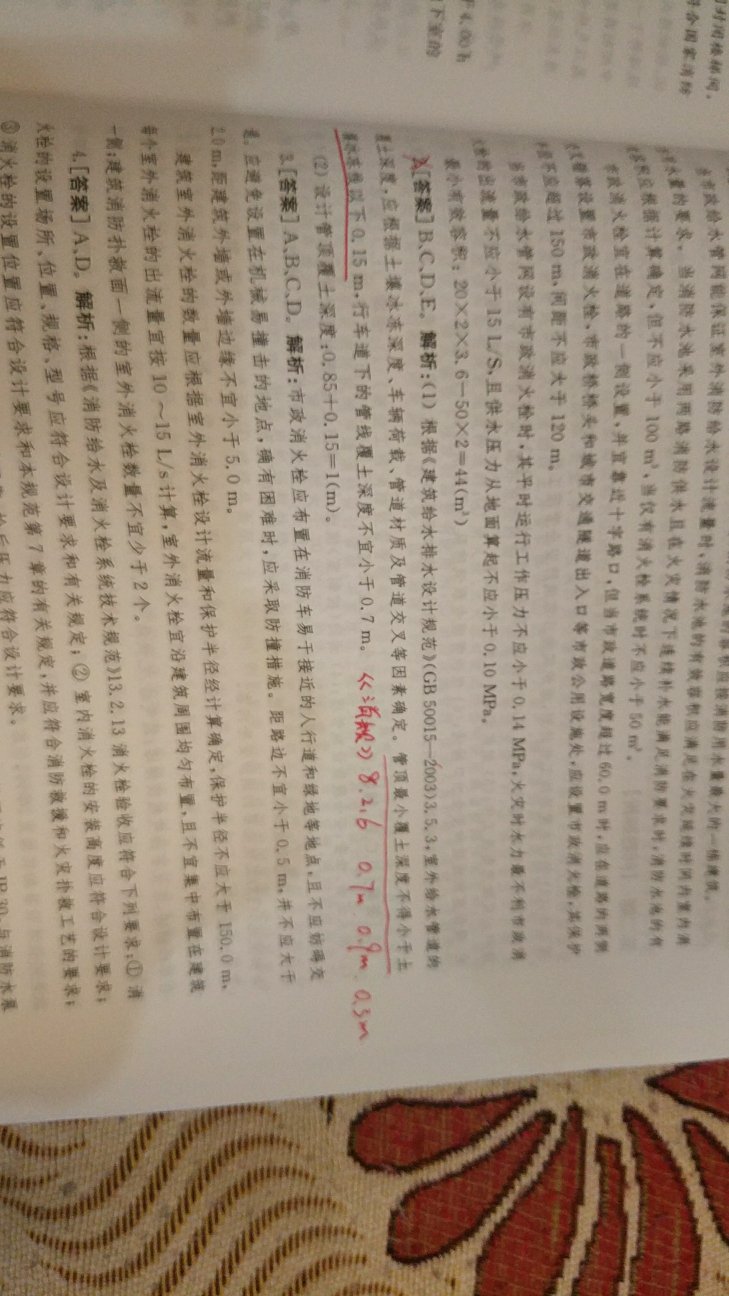 市政给水管网能保证室外消防给水设计流量时，消防水池的有效容积应满足在火灾延续时间内室内消
水量的要求。当消防水池采用两路消防供水且在火灾情况下连续补水能满足消防要求时，消防水池的有
应根据计算确定，但不应小于100 m³，当仅有消火栓系统时不应小于50 m³。
市政消火栓宜在道路的一侧设置，并宜靠近十字路口，但当市政道路宽度超过60.0 m时，应在道路的两侧
设置市政消火栓，市政桥桥头和城市交通隧道出入口等市政公用设施处，应设置市政消火栓，其保护
不应超过150 m，间距不应大于120 m。
当市政给水管网设有市政消火栓时，其平时运行工作压力不应小于0.14 MPa，火灾时水力最不利市政消
的出流量不应小于15 L/S，且供水压力从地面算起不应小于0.10 MPa。
最小有效容积：20×2×3.6－50×2＝44(m³)
2.[答案]B、C、D、E。解析：(1)根据《建筑给水排水设计规范》(GB 50015—2003)3.5.3，室外给水管道的
覆土深度，应根据土壤冰冻深度、车辆荷载、管道材质及管道交叉等因素确定。管顶最小覆土深度不得小于土
壤冰冻线以下0.15 m，行车道下的管线覆土深度不宜小于0.7 m。
《消规》8.2.6 0.7m 0.9m 0.3m
(2)设计管顶覆土深度：0.85＋0.15＝1(m)。
3.[答案]A、B、C、D。解析：市政消火栓应布置在消防车易于接近的人行道和绿地等地点，且不应妨碍交
通，应避免设置在机械易撞击的地点，确有困难时，应采取防撞措施。距路边不宜小于0.5 m，并不应大于
2.0 m，距建筑外墙或外墙边缘不宜小于5.0 m。
建筑室外消火栓的数量应根据室外消火栓设计流量和保护半径经计算确定，保护半径不应大于150.0 m，
每个室外消火栓的出流量宜按10～15 L/s计算，室外消火栓宜沿建筑周围均匀布置，且不宜集中布置在建筑
一侧；建筑消防扑救面一侧的室外消火栓数量不宜少于2个。
4.[答案]A、D。解析：根据《消防给水及消火栓系统技术规范》13.2.13 消火栓验收应符合下列要求：①消
火栓的设置场所、位置、规格、型号应符合设计要求和有关规定；②室内消火栓的安装高度应符合设计要求；
③消火栓的设置位置应符合设计要求和本规范第7章的有关规定，并应符合消防救援和火灾扑救工艺的要求；
应符合设计要求。